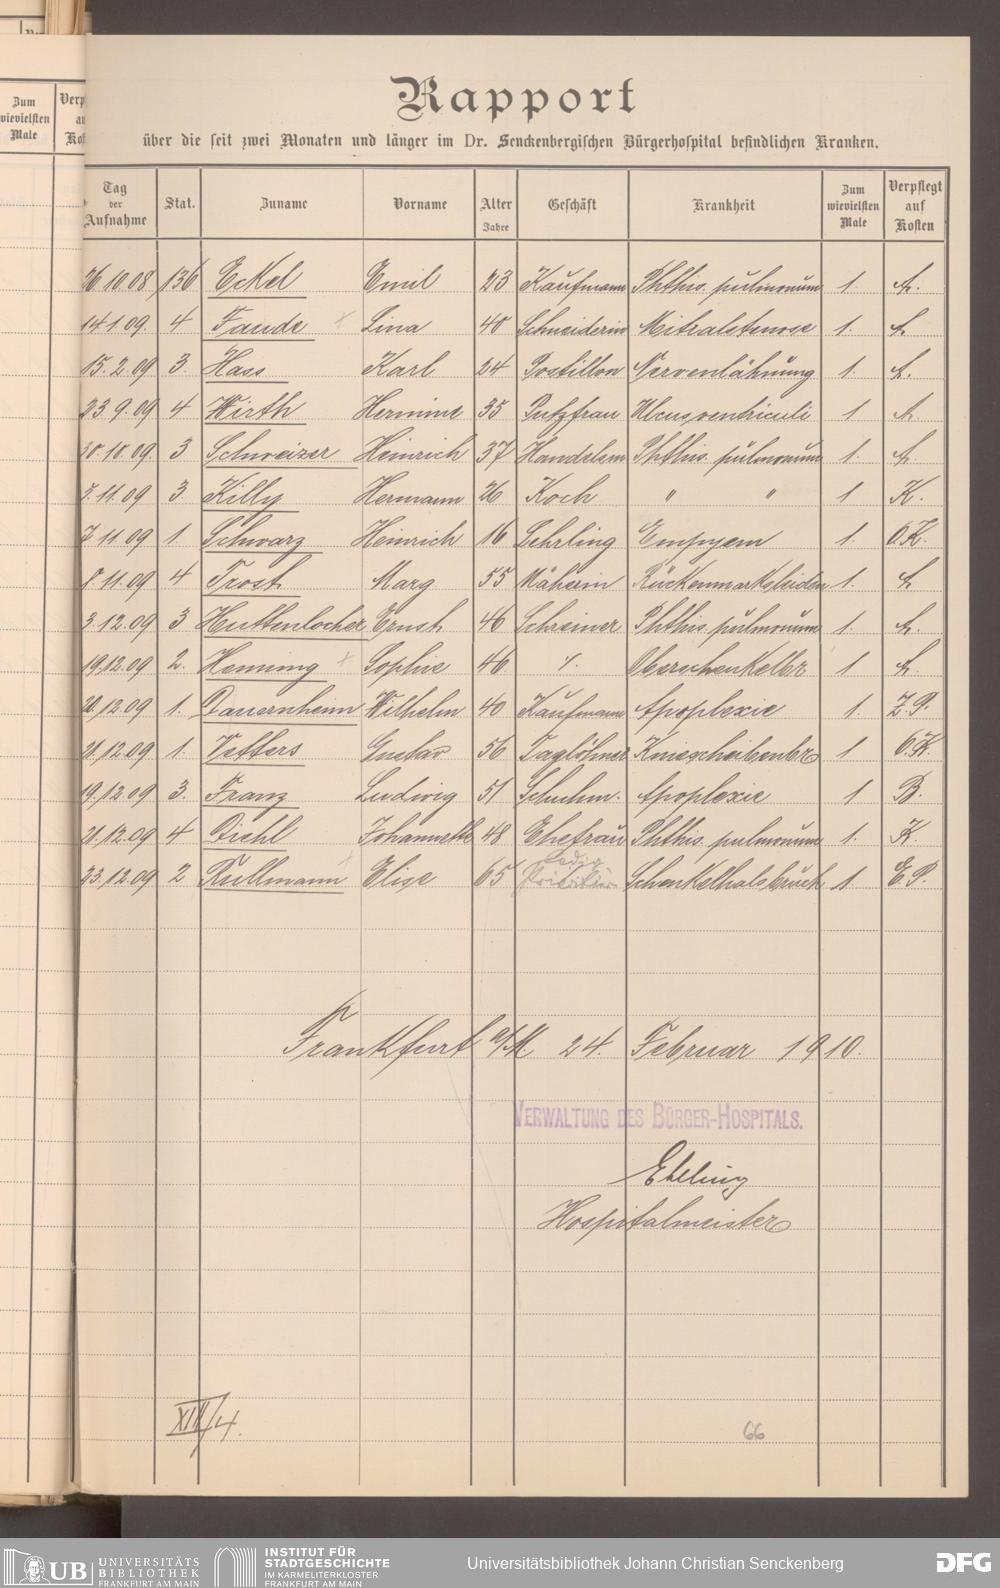 Zum
wievielsten
Male
Rapport
über die seit zwei Monaten und länger im Dr. Senckenbergischen Bürgerhospital befindlichen Kranken.
Tag der Aufnahme Stat. Zuname Vorname Alter Jahre Geschäft Krankheit Zum wievielsten Male Verpflegt auf Kosten
26 10 08 136 Eckel Emil 23 Kaufmann Phthis. pulmonum 1.
14 1. 09. 4 Faude Lina 40 Schneiderin Mitralstenose 1.
15. 2. 09 3. Hass Karl 24 Postillon Nervenlähmung 1.
23 9. 09 4 Wirth Hermine 35 Putzfrau Ulcus ventriculi 1
30. 10. 09. 3 Schweizer Heinrich 37 Handelsm Phthis. pulmonum 1.
5. 11. 09 3. Killy Hermann 26 Koch " " 1 K.
7 11. 09 1. Schwarz Heinrich 16 Lehrling Empyem 1. O.K.
8. 11. 09 4 Trost Marg. 55 Näherin Rückenmarksleiden 1.
3. 12. 09 3 Huttenlocher Ernst 46 Schreiner Phthis. pulmonum 1.
19. 12. 09 2. Heming Sophie 46 Oberschenkelbr 1
20. 12. 09 1. Dauernheim Wilhelm 40 Kaufmann Apoplexie 1. Z. P.
21. 12. 09 1. Vetters Gustav 56 Taglöhner Kniescheibenbr 1 O.K.
19. 12. 09 3. Franz Ludwig 51 Schuhm. Apoplexie 1 B.
21. 12. 09 4 Diehl Johannette 48 Ehefrau Phthis. pulmonum 1. K.
ledig
23. 12. 09 2 Kullmann Elise 65 Schenkelhalsbruch 1 E. P.
Frankfurt a/M 24. Februar 1910.
VERWALTUNG DES BÜRGER-HOSPITALS.
Ebeling
Hospitalmeister
XIII/4.
66
UB UNIVERSITÄTS
BIBLIOTHEK
FRANKFURT AM MAIN
INSTITUT FÜR
STADTGESCHICHTE
IM KARMELITERKLOSTER
FRANKFURT AM MAIN
Universitätsbibliothek Johann Christian Senckenberg
DFG